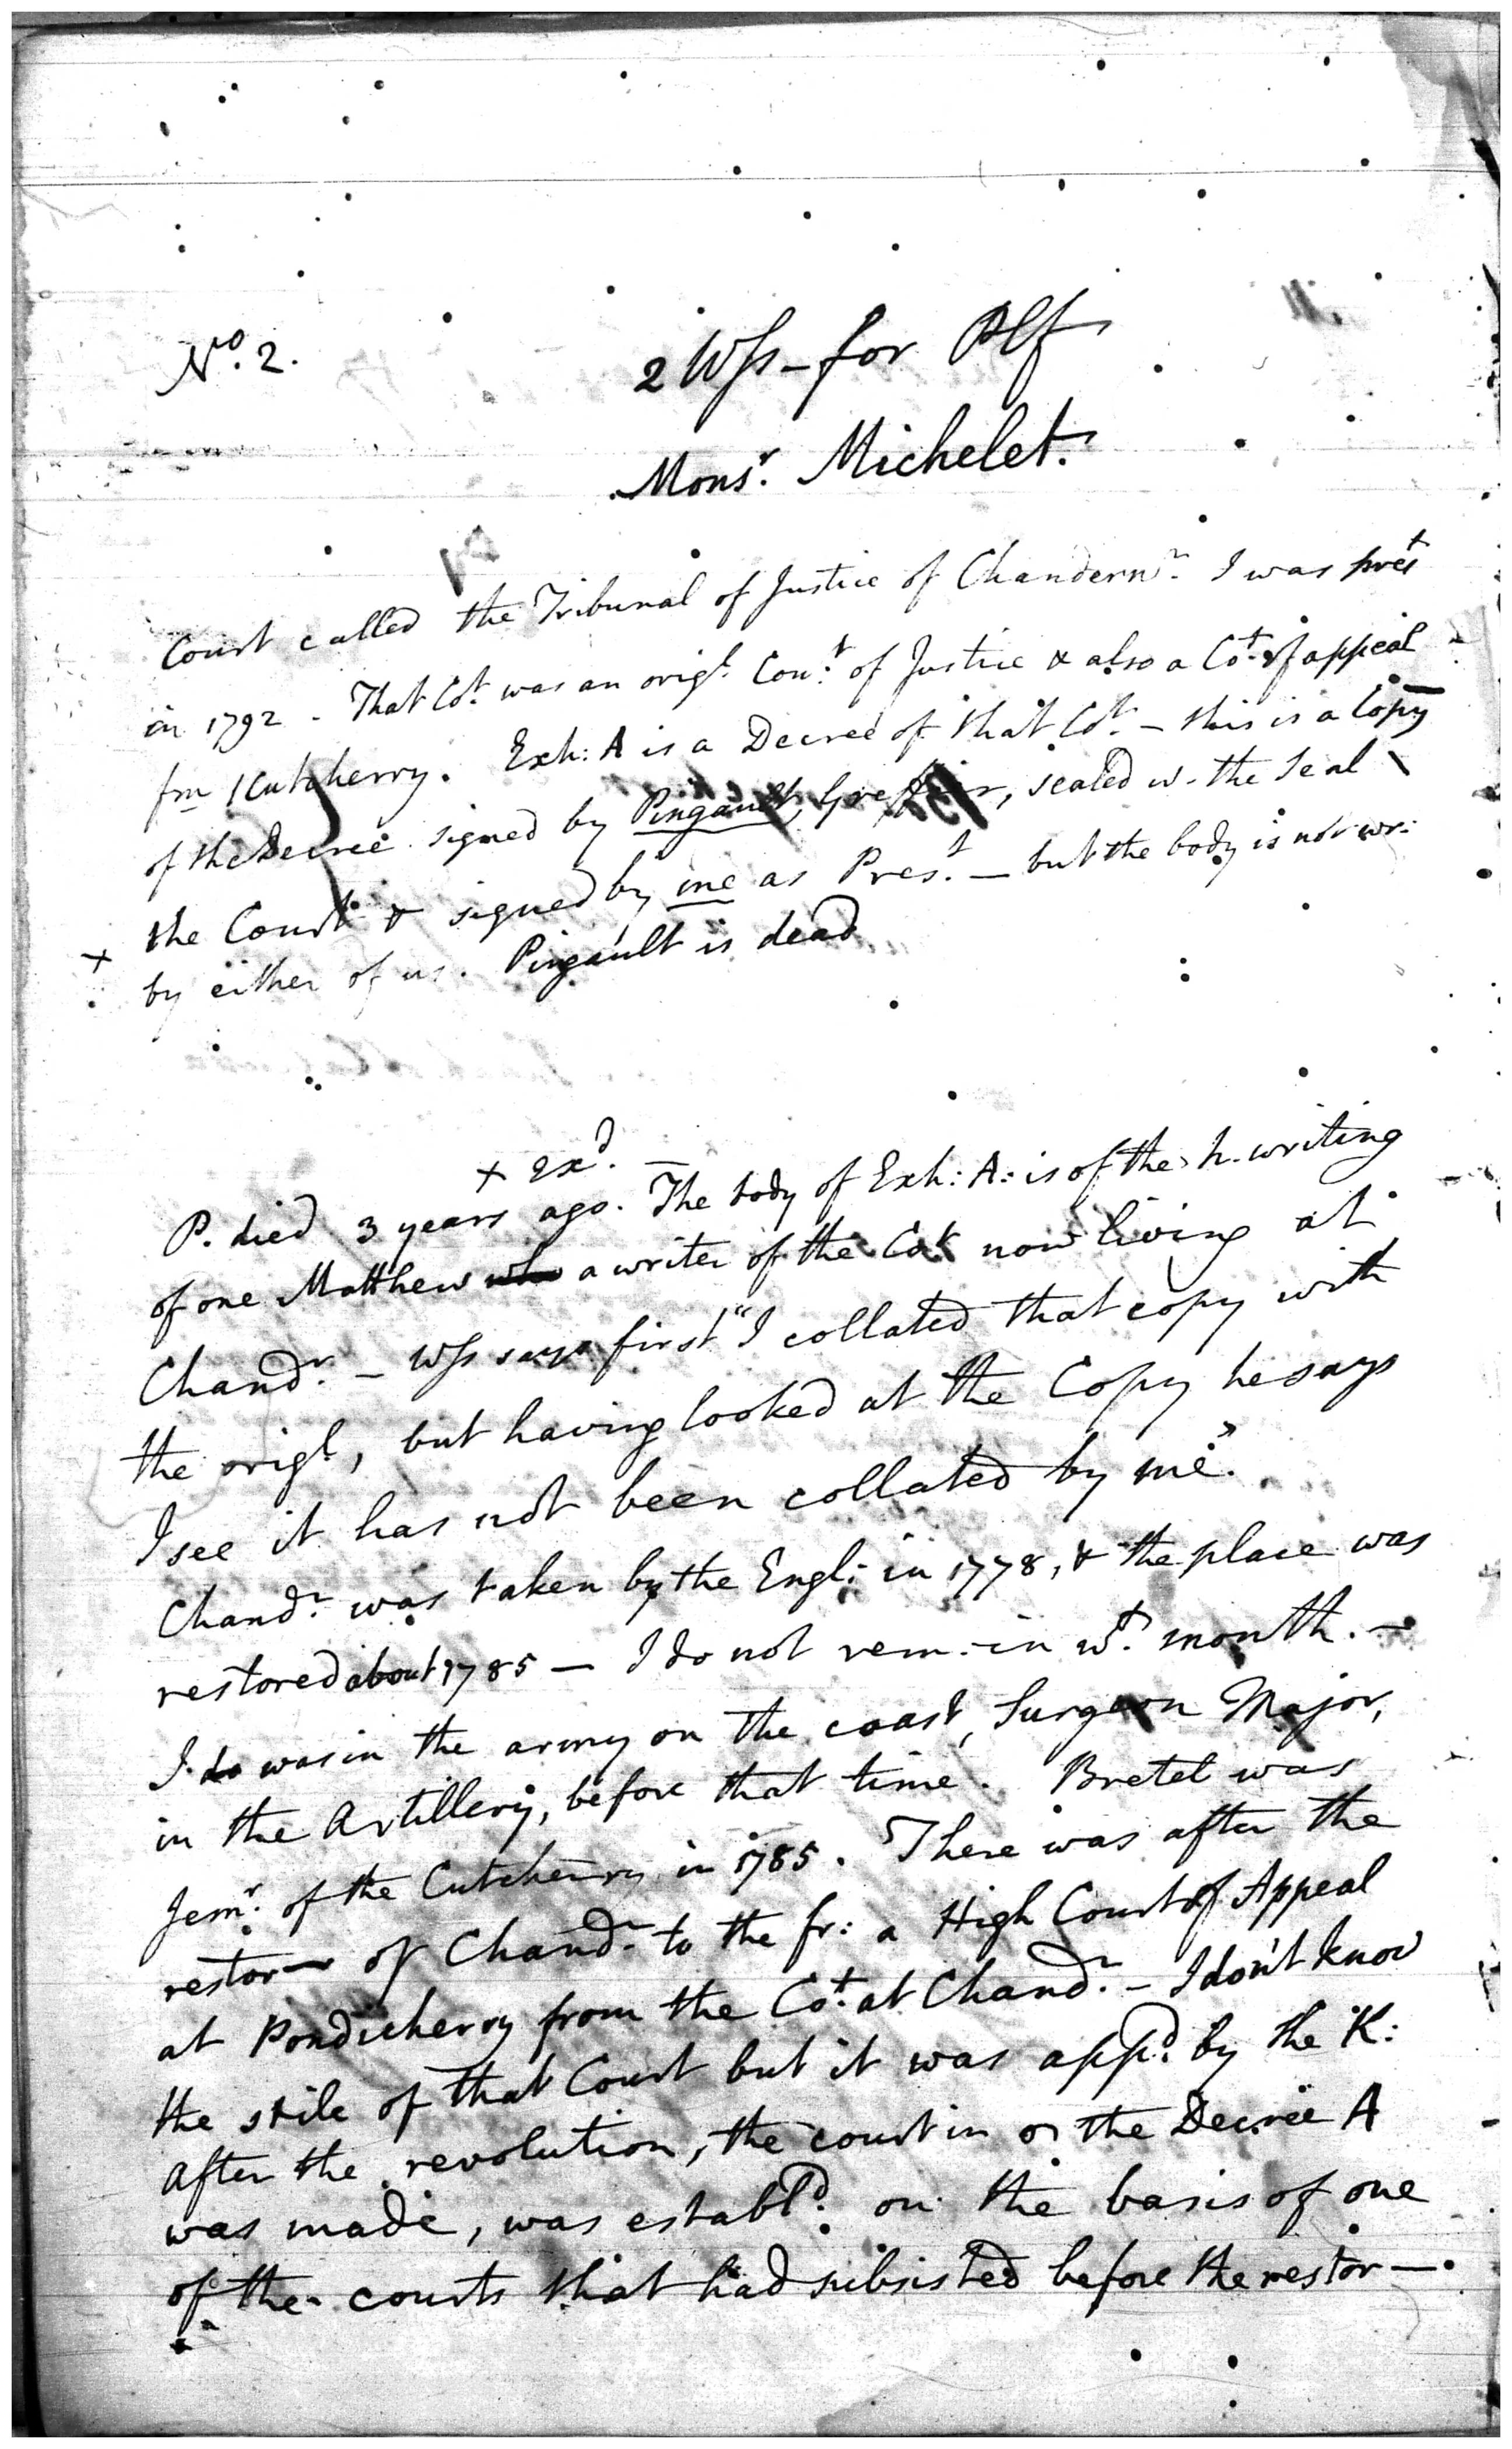 No. 2.
2 Wss - for Plf
Monsr. Michelet.
Court called the Tribunal of Justice of Chandernr. I was prest
in 1792 - That Cot. was an origl. Cou:t of Justice & also a Cot. of appeal
fm Kutcherry. Exh: A is a Decree of that Cot. - this is a Copy
of the Decree signed by Pingault, Greffier, sealed w. the Seal
the Court & signed by me as Prest. - but the body is not wr:
+ by either of us. Pingault is dead
+ exd. -
P. died 3 years ago. The body of Exh: A: is of the h. writing
of one Matthew who a writer of the Cot now living at
Chandr. - Wss says first "I collated that copy with
the origl., but having looked at the Copy he says
I see it has not been collated by me."
Chandr. was taken by the Engl: in 1778, & the place was
restored about 1785 - I do not rem. in wt. month. -
I do was in the army on the coast, Surgeon Major,
in the Artillery, before that time. Bretel was
Jemr. of the Cutcherry in 1785. There was after the
restor- of Chandr. to the fr: a High Court of Appeal
at Pondicherry from the Cot. at Chandr. - I don't know
the stile of that Court but it was appd. by the K:
After the revolution, the court in the Decree A
was made, was establd. on the basis of one
of the courts that had subsisted before the restor-.